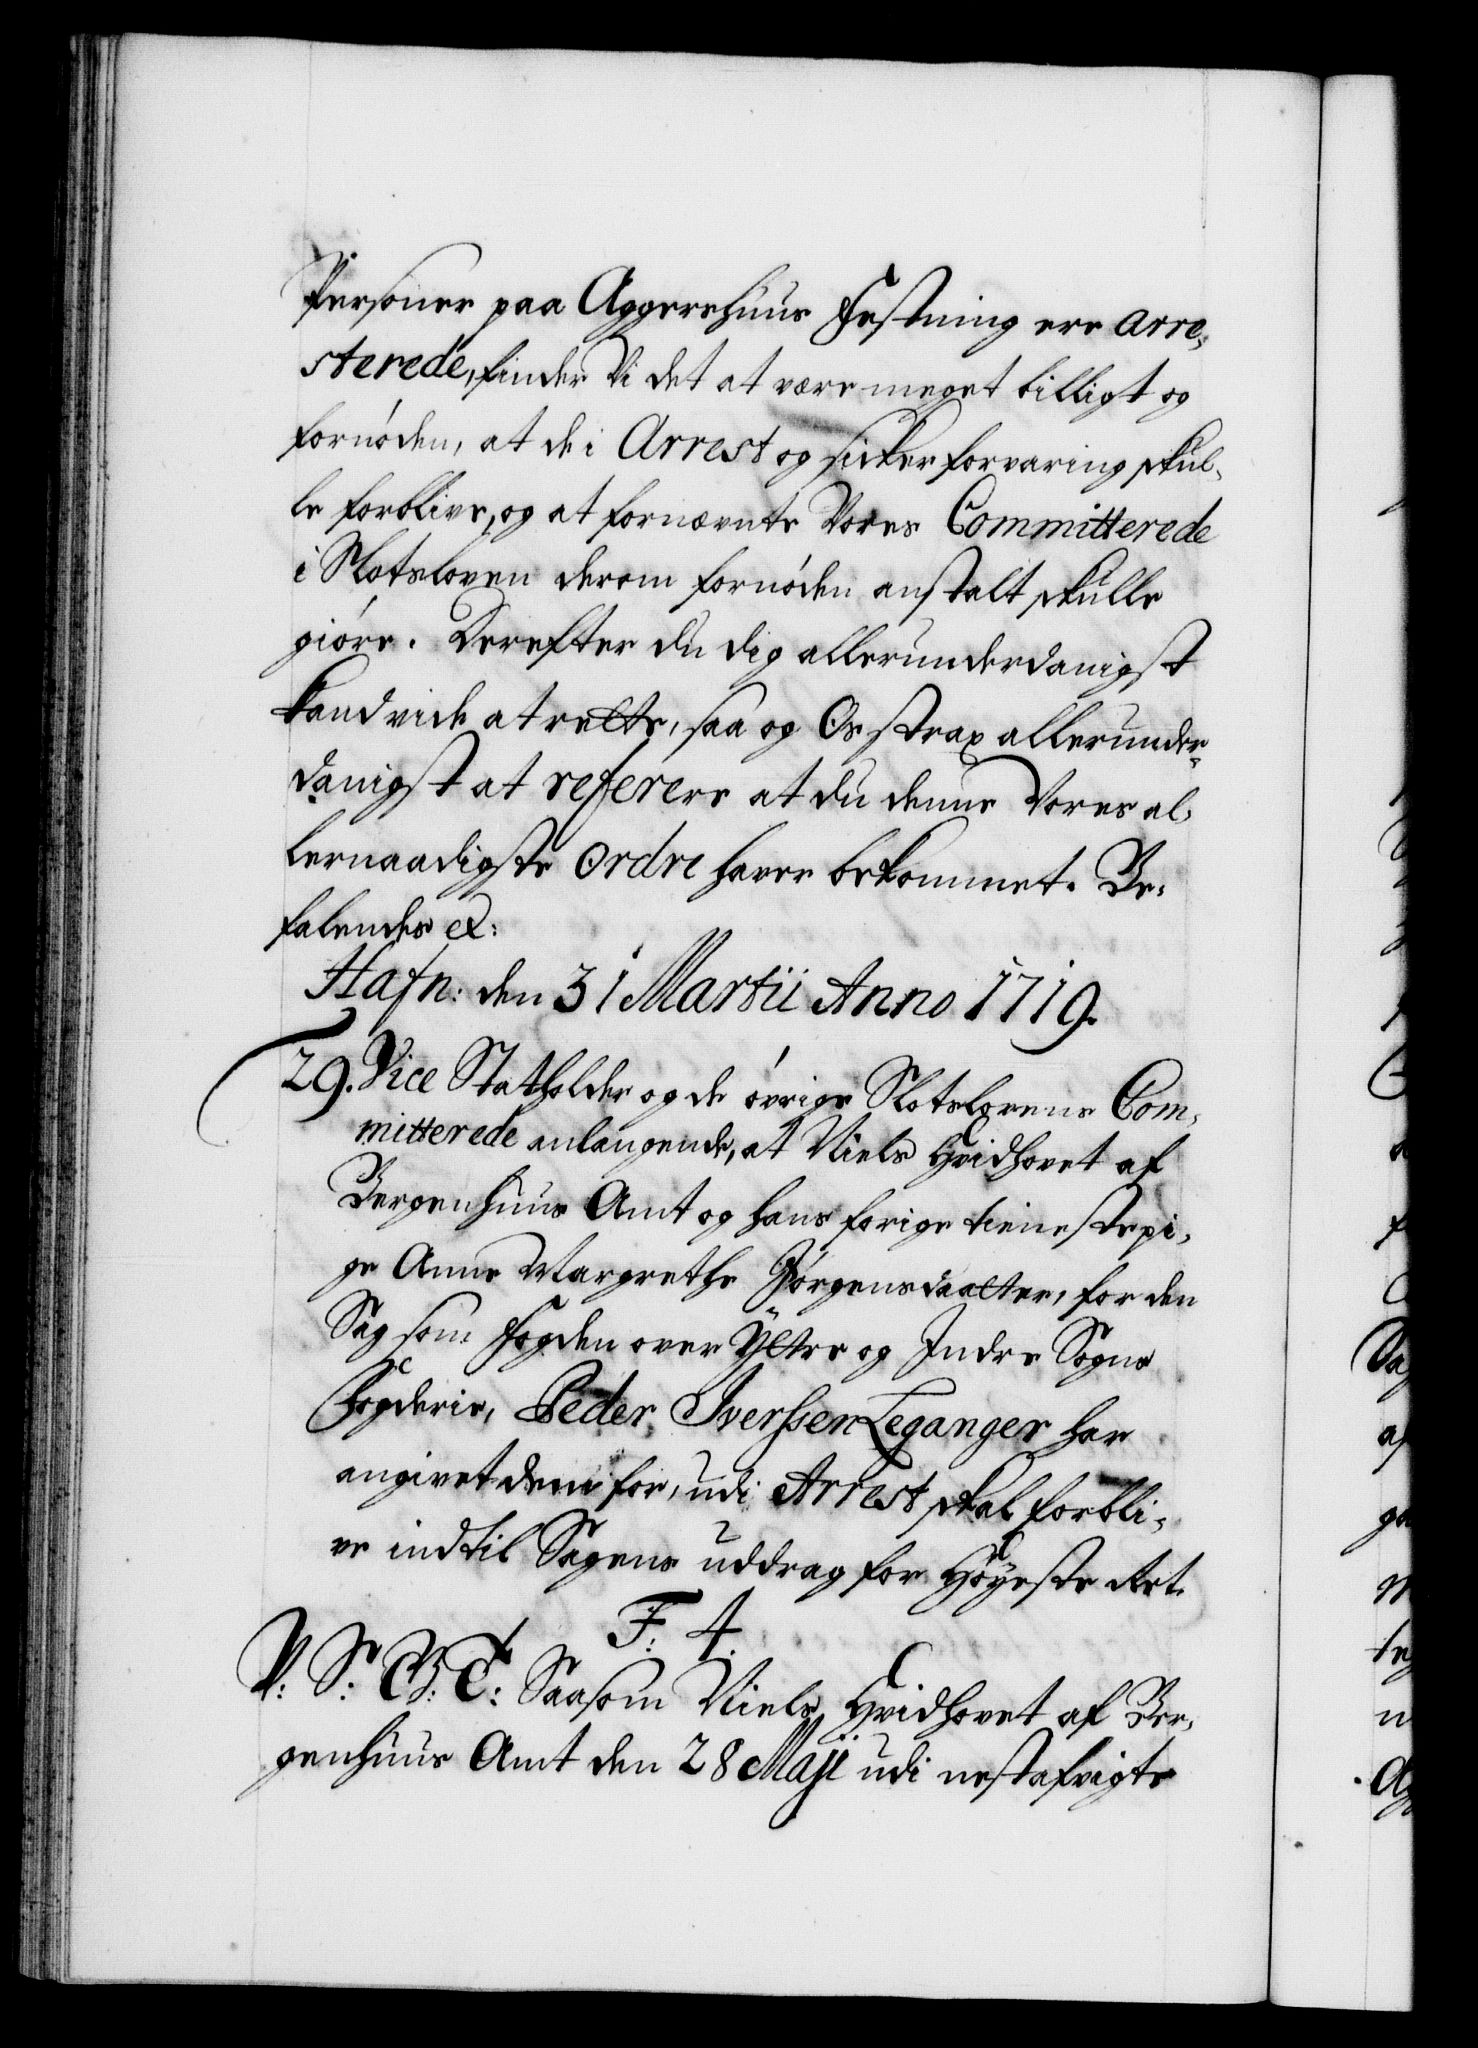 Personer paa Aggershuus Festning ere arre-
sterede, finder Vi det at være meget billigt og
fornøden, at de i Arrest og sicker forvaring skul-
le forblive, og at fornævnte Vores Committerede
i Slotsloven derom fornøden anstalt skulle
giøre. Derefter du dig allerunderdanigst
kand vide at rette, saa og Os strax allerunder-
danigst at referere at du denne Vores al-
lernaadigste Ordre haver bekommet. Be-
falendes etc:
Hafn: den 31 Martii Anno 1719.
29. Vice Statholder og de øvrige Slotslovens Com-
mitterede anlangende, at Niels Hvidhovet af
Bergenhuus Amt og hans forige tieneste pi-
ge Anne Margrethe Jørgensdaatter, for den
Sag som Fogden over Yttre og Indre Sogns
Fogderie, Peder Iverssen Leganger har
angivet dem for, udi Arrest skal forbli-
ve indtil Sagens uddrag for Høyeste Ret.
F: 4.
V: S: G: T: Saasom Niels Hvidhovet af Ber-
genhuus Amt den 28 Maji udi nestafvigte